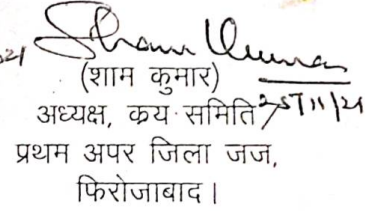 Sham Kumar
(शाम कुमार)
अध्यक्ष, कय समिति 25/11/21
प्रथम अपर जिला जज,
फिरोजाबाद।